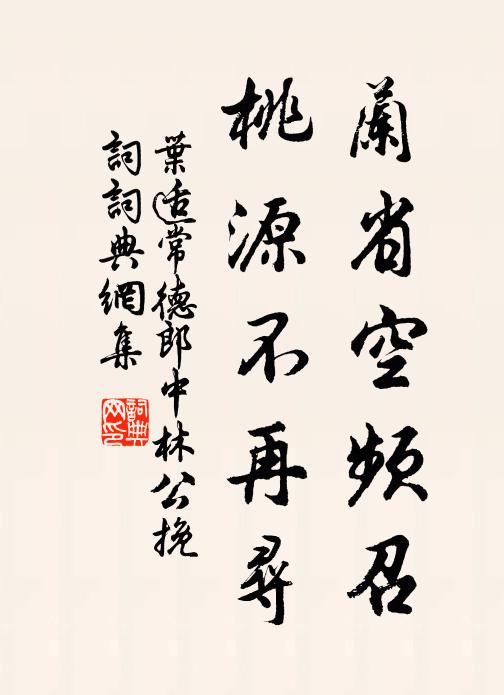 蘭省空頻召
桃源不再尋
葉适常德郎中林公挽
詞詞典網集
詞典網印